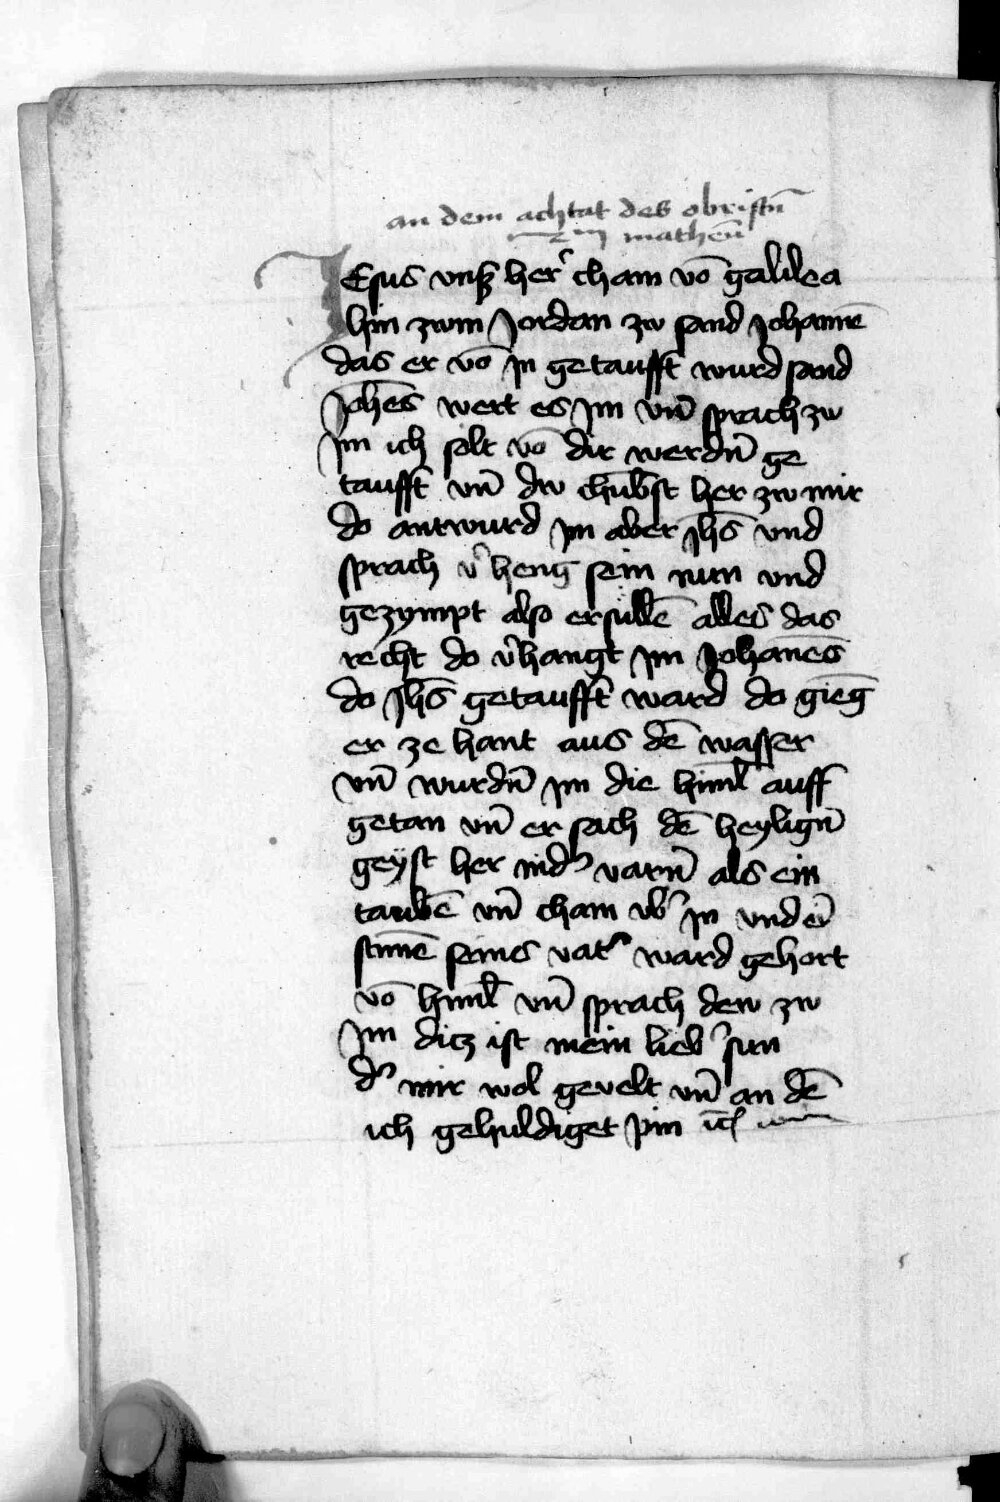 an dem achtat des obristn̄
iij matheū
JEsus vnsʒ herʾ cham vō galilea
hin zwm Jordan zw sand Johannē
das er vō Jn getaufft wurd sand
Joh̄es wert es Jm vn̄ sprach zw
Jm ich solt vō dir werdn̄ ge
taufft vn̄ dw chūbst her zw mir
do antwurd Jm aber Jh̄s vnd
sprach vʾheng sein nun vnd
gezympt also erfullē alles das
recht do vʾhangt Jm Johānes
do Jh̄s getaufft ward do gienḡ
er ze hant aus dē wasser
vn̄ wurdn̄ Jm die himl̄ auff
getan vn̄ er sach dē heylign̄
geyst her nidʾ varn̄ als ein
tawbē vn̄ cham vbʾ Jn vnd eī
stīmē seines vatʾ ward gehort
vō himl̄ vn̄ sprach dew zw
Jm ditz ist mein liebʾ sun
dʾ mir wol gevelt vn̄ an dē
ich gehuldiget pin